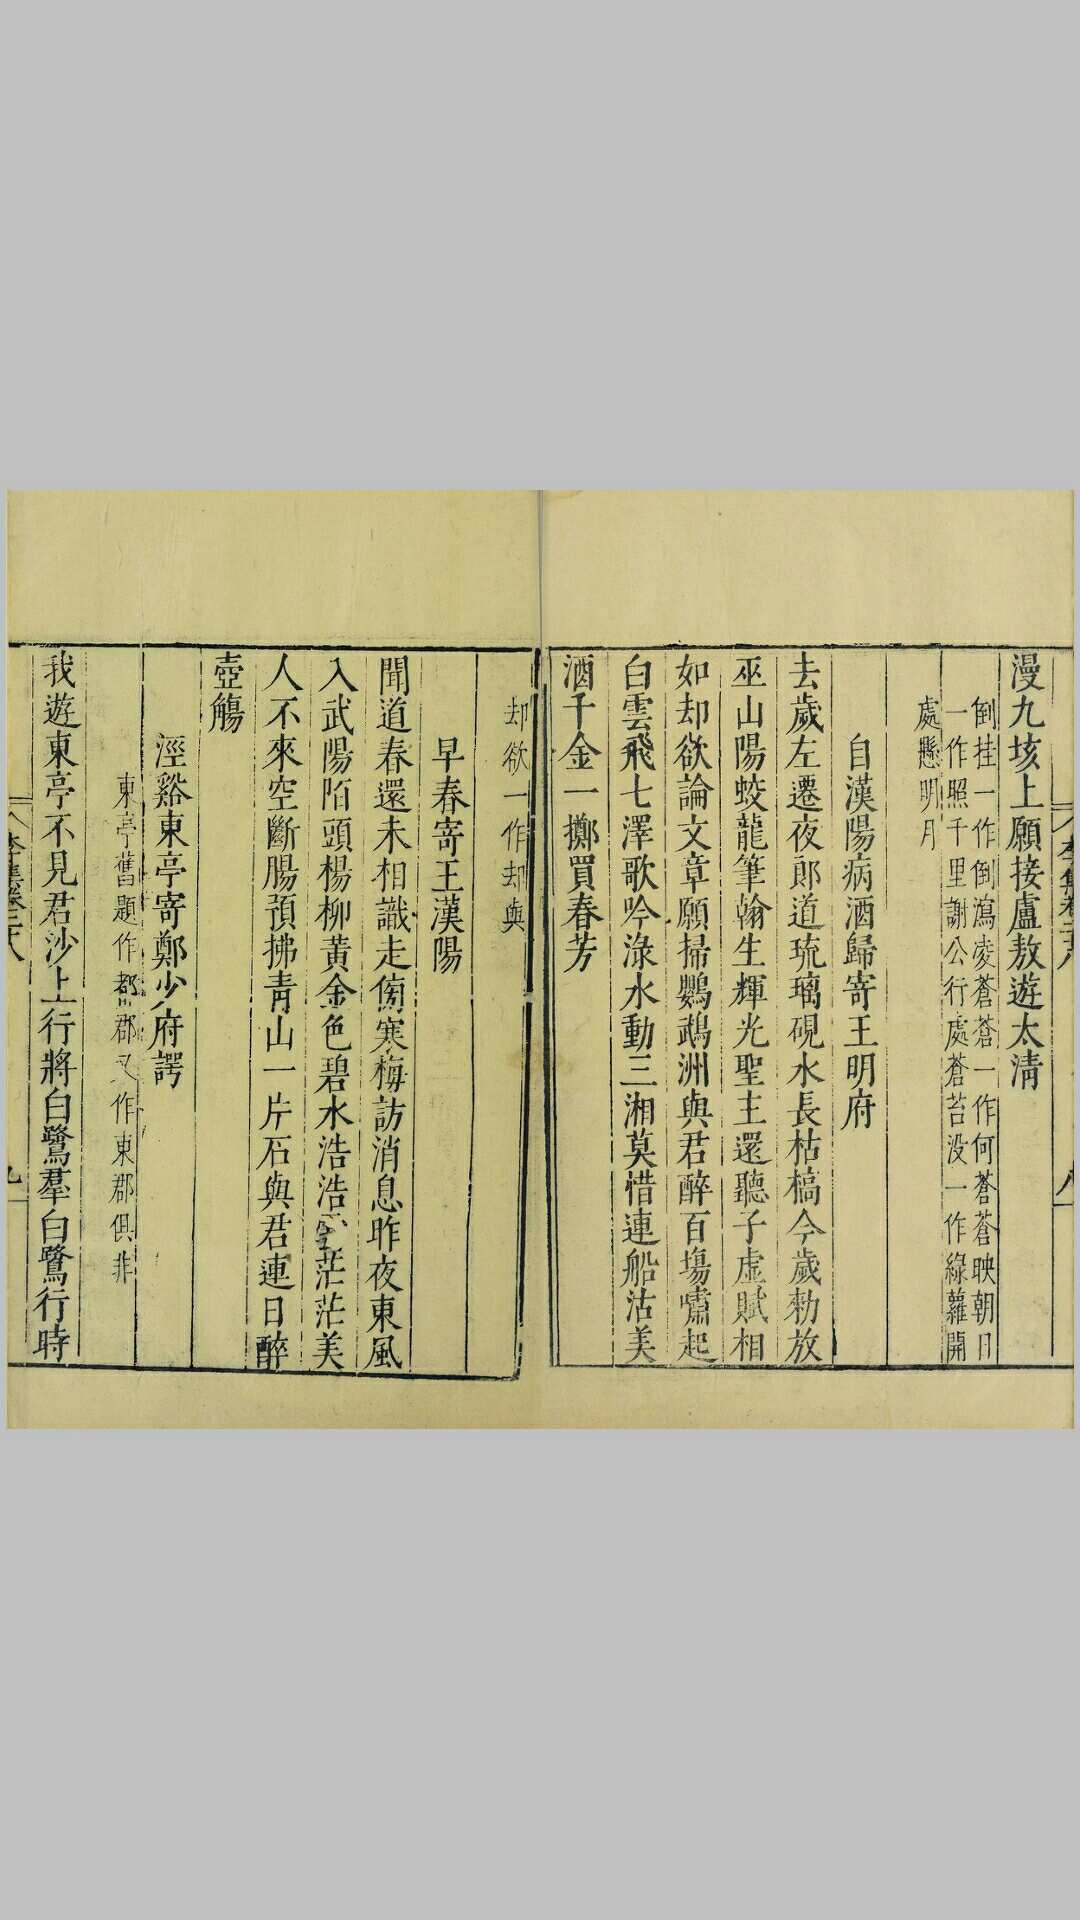 漫九垓上願接盧敖遊太淸
倒挂一作倒瀉凌蒼蒼一作何蒼蒼映朝日
一作照千里謝公行處蒼苔没一作綠蘿開
處懸明月
自漢陽病酒歸寄王明府
去歲左遷夜郞道琉璃硯水長枯槁今歲勑放
巫山陽蛟龍筆翰生輝光聖主還聽子虛賦相
如却欲論文章願掃鸚鵡洲與君醉百塲嘯起
白雲飛七澤歌吟淥水動三湘莫惜連船沽美
酒千金一擲買春芳
却欲一作却與
早春寄王漢陽
聞道春還未相識走傍寒梅訪消息昨夜東風
入武陽陌頭楊柳黃金色碧水浩浩雲茫茫美
人不來空斷腸預拂靑山一片石與君連日醉
壺觴
涇谿東亭寄鄭少府諤
東亭舊題作都郡又作東郡俱非
我遊東亭不見君沙上行將白鷺羣白鷺行時